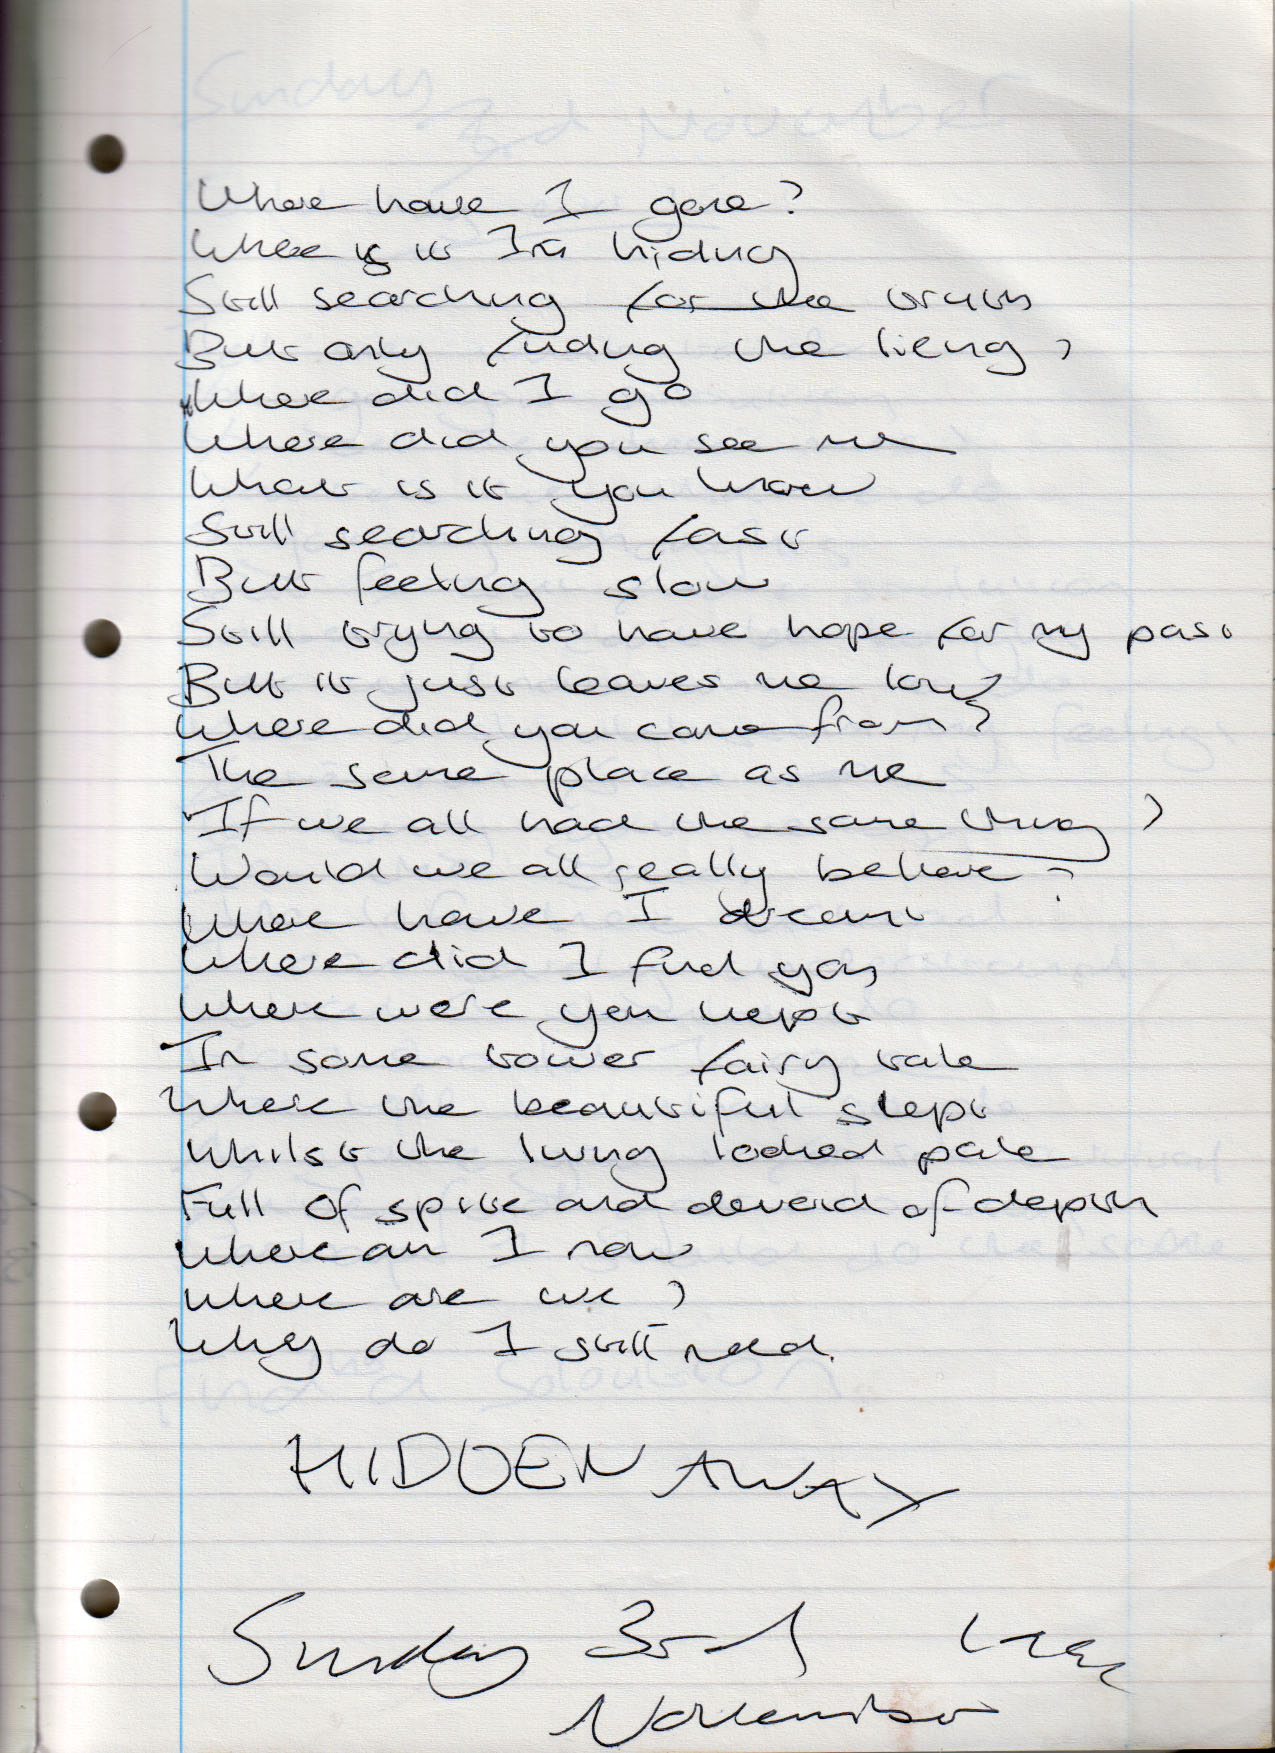 Where have I gone?
Where is it Im hiding
Still searching for the truth
But only finding the lieing?
Where did I go
Where did you see me
What is it you know
Still searching fast
But feeling slow
Still trying to have hope for my past
But it just leaves me low
Where did you come from?
The same place as me
If we all had the same thing?
Would we all really believe?
Where have I dreamt
Where did I find you
Where were you kept
In some tower fairy tale
Where the beautiful slept
Whilst the living looked pale
Full of spite and devoid of depth
Where am I now
Where are we?
Why do I still need.
HIDDEN AWAY
Sunday 3rd
November